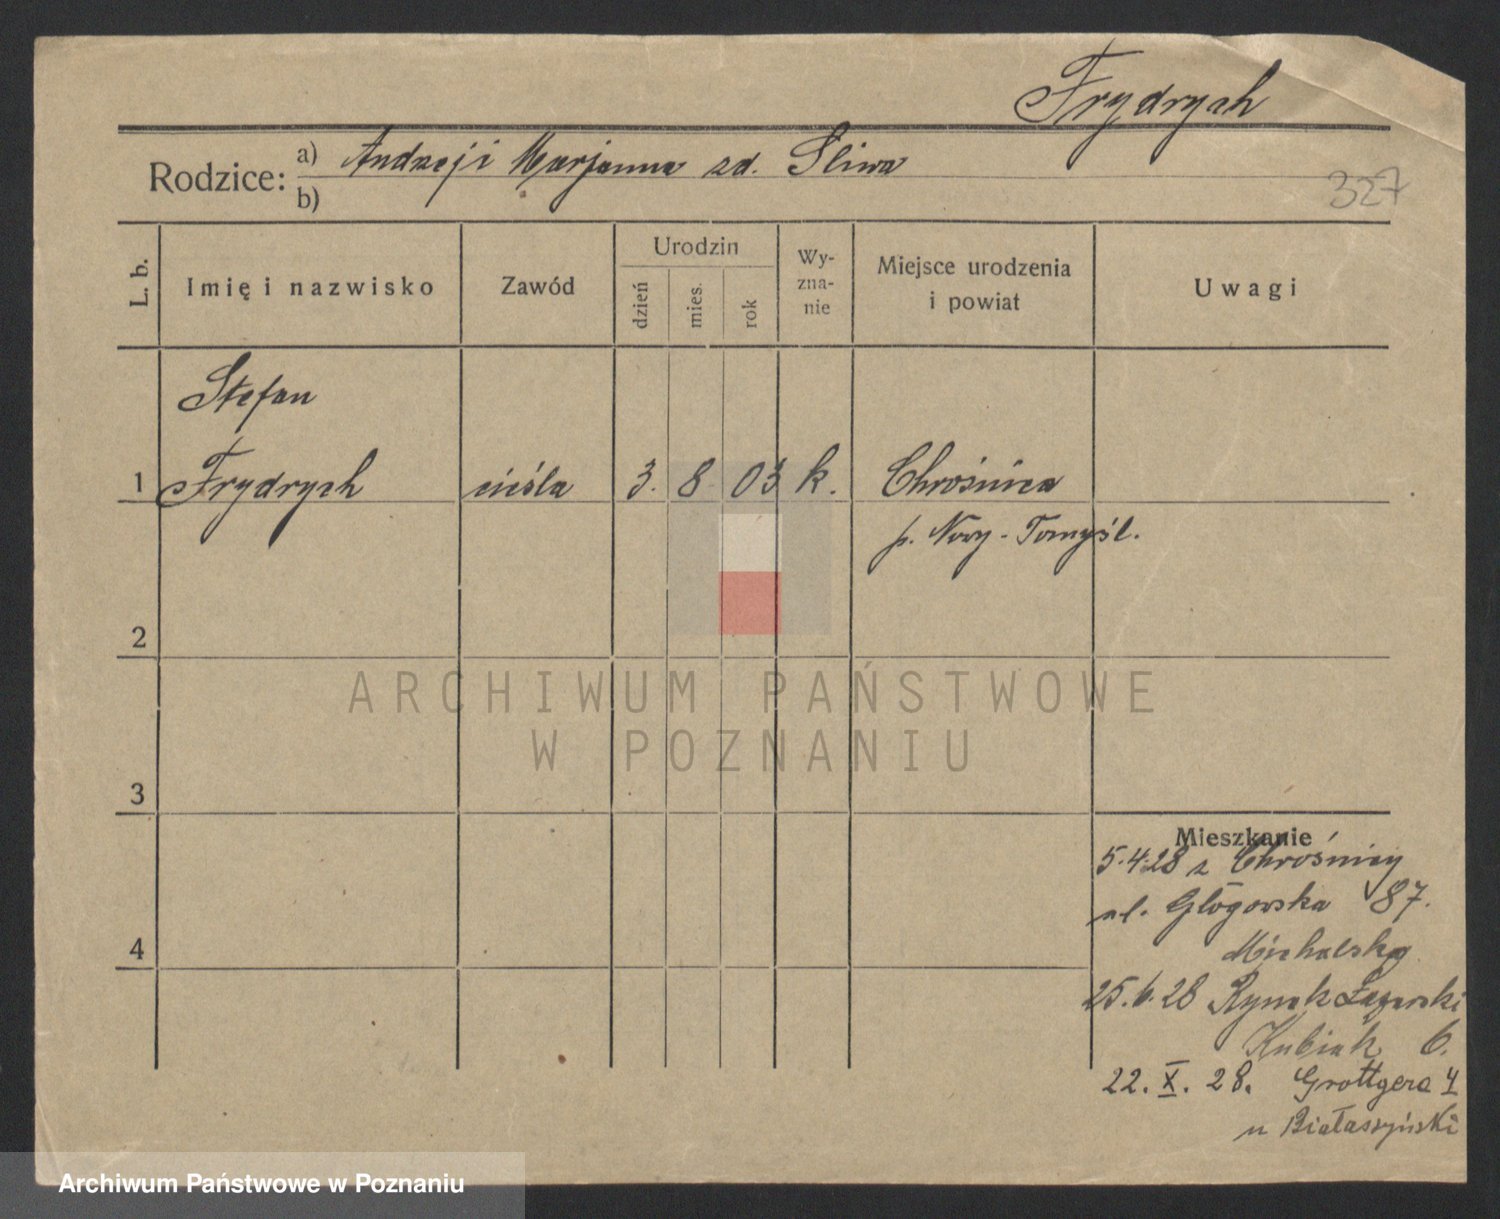 Frydrych
Rodzice: a) Andrzej i Marjanna zd. Śliwa
b)
327
L. b.
Imię i nazwisko
Zawód
Urodzin
dzień
mies.
rok
Wy-
zna-
nie
Miejsce urodzenia
i powiat
Uwagi
Stefan
1 Frydrych cieśla 3. 8 03 k. Chrośnica
p. Nowy-Tomyśl.
2
3
4
Mieszkanie
5.4.28 z Chrośnicy
ul. Głogowska 87.
Michalska
25.6.28 Rynek Łazarski
Kubiak 6.
22. X. 28. Grottgera 4
u Białaszyński
ARCHIWUM PAŃSTWOWE
W POZNANIU
Archiwum Państwowe w Poznaniu